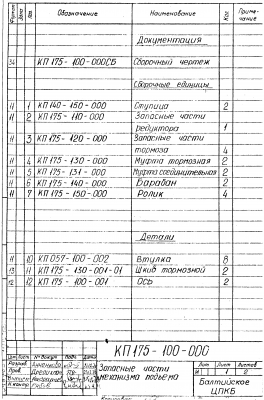 Формат Зона Поз. Обозначение Наименование Кол Приме-чание
Документация
КП 175-100-000СБ Сборочный чертеж
Сборочные единицы
11 1 КП 140-150-000 Ступица 2
11 2 КП 175-110-000 Запасные части
редуктора 1
11 3 КП 175-120-000 Запасные части
тормоза 4
11 4 КП 175-130-000 Муфта тормозная 2
11 5 КП 175-131-000 Муфта соединительная 2
11 6 КП 175-140-000 Барабан 2
11 7 КП 175-150-000 Ролик 4
Детали
11 10 КП 057-100-002 Втулка 8
11 КП 175-130-001-01 Шкив тормозной 2
12 12 КП 175-100-001 Ось 2
КП 175-100-000
Изм Лист № докум Подп. Дата
Разраб.
Пров.
Н. контр
Запасные части
механизма подъема
Лит Лист Листов
И 1 2
Балтийское
ЦПКБ